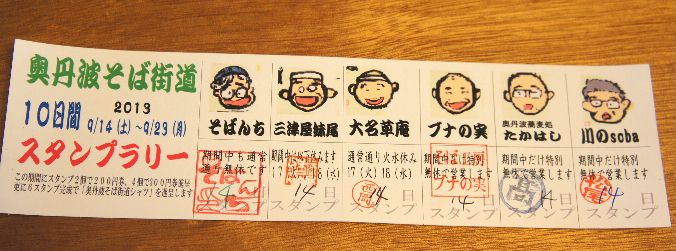 奥丹波そば街道
10日間
2013
9/14(土)~9/23(月)
スタンプラリー
この期間にスタンプ2個で200円券、4個で300円券進呈
更に6スタンプ完成で「奥丹波そば街道シャツ」を進呈します
そばんち
期間中も通常
通り無休です
14日
スタンプ
三津屋妹尾
17
18(水)
14日
スタンプ
大名草庵
通常通り火水休み
17(火)18(水)
西岡
14日
スタンプ
ブナの実
期間中だけ特別
無休で営業します
ブナの実
14日
スタンプ
奥丹波蕎麦処
たかはし
期間中だけ特別
無休で営業します
髙
14日
スタンプ
川のsoba
期間中だけ特別
無休で営業します
松尾
14日
スタンプ